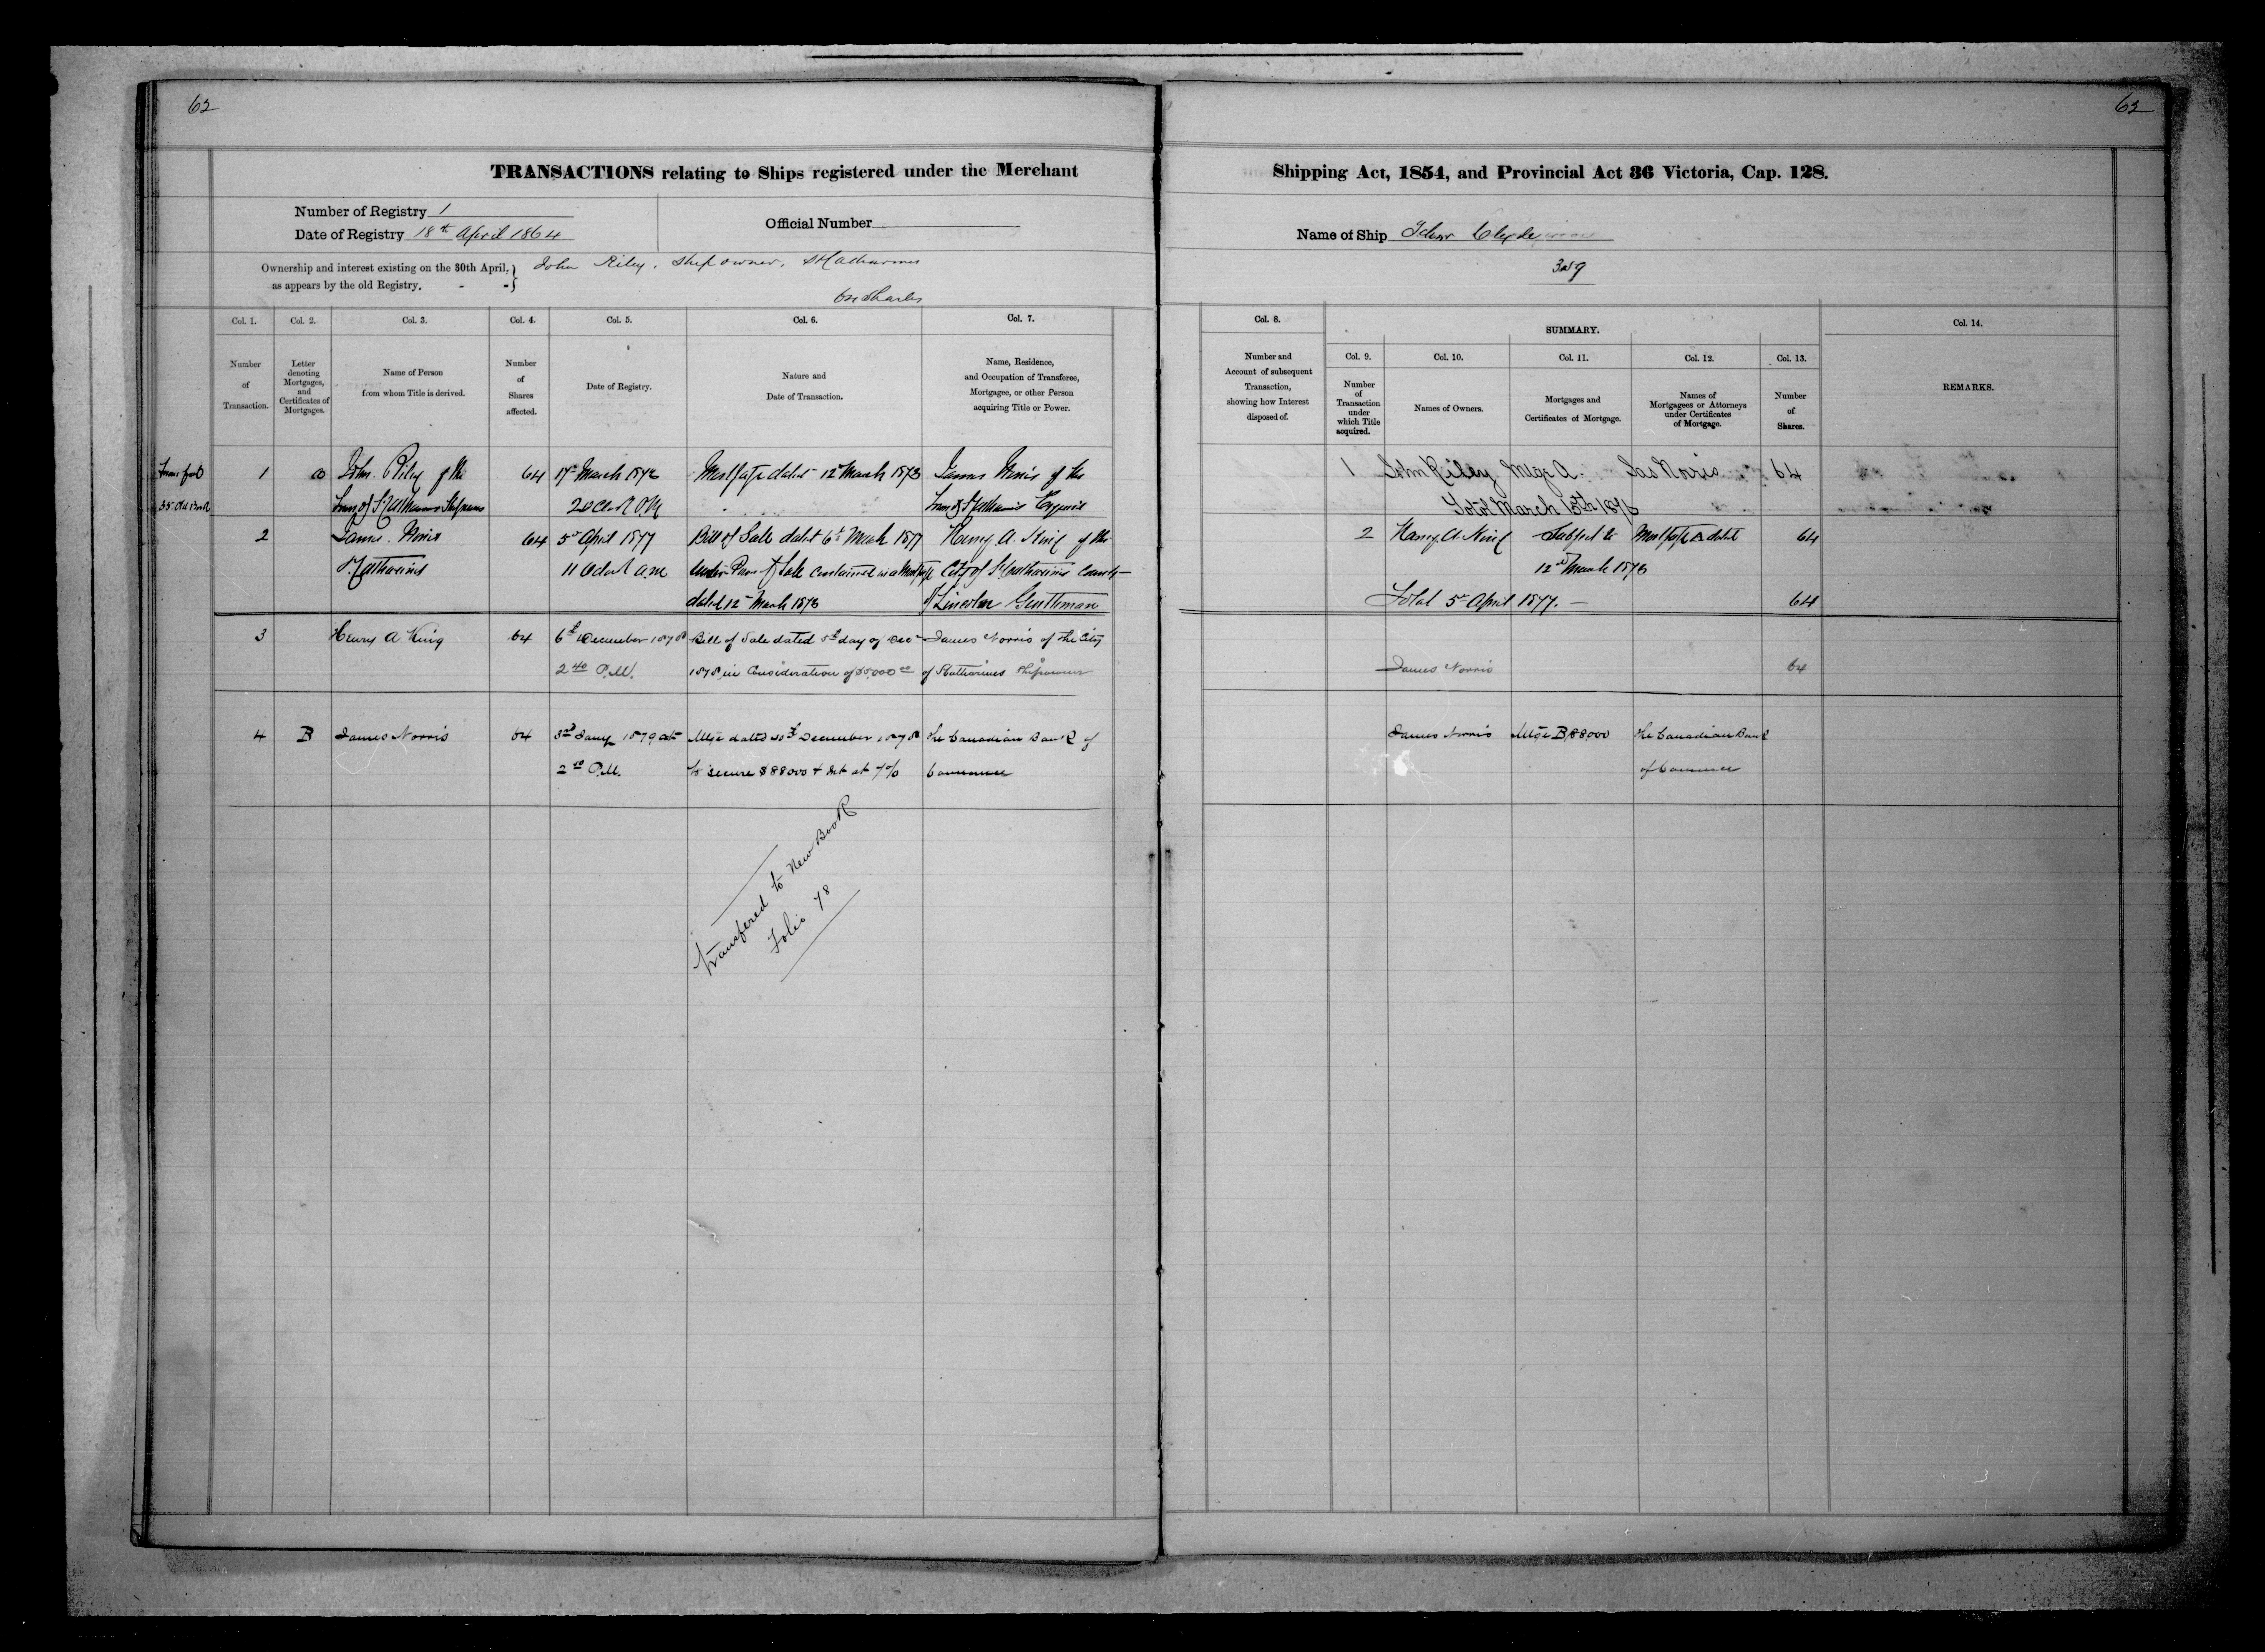 62
62
TRANSACTIONS relating to Ships registered under the Merchant
Shipping Act, 1854, and Provincial Act 36 Victoria, Cap. 128.
Number of Registry 1
Date of Registry 18th April 1864
Official Number
Name of Ship Schnr Clyde
Ownership and interest existing on the 30th April,
as appears by the old Registry. - -
John Riley, Ship owner, St Catharines
64 Shares
Col. 1.
Number
of
Transaction.
Col. 2.
Letter
denoting
Mortgages,
and
Certificates of
Mortgages.
Col. 3.
Name of Person
from whom Title is derived.
Col. 4.
Number
of
Shares
affected.
Col. 5.
Date of Registry.
Col. 6.
Nature and
Date of Transaction.
Col. 7.
Name, Residence,
and Occupation of Transferee,
Mortgagee, or other Person
acquiring Title or Power.
Col. 8.
Number and
Account of subsequent
Transaction,
showing how Interest
disposed of.
SUMMARY.
Col. 9.
Number
of
Transaction
under
which Title
acquired.
Col. 10.
Names of Owners.
Col. 11.
Mortgages and
Certificates of Mortgage.
Col. 12.
Names of
Mortgagees or Attorneys
under Certificates
of Mortgage.
Col. 13.
Number
of
Shares.
Col. 14.
REMARKS.
35 Old Book
1
John Riley of the
Town of St Catharines Shipowner
64
March
Mortgage dated 12 March 1876
James Norris of the
Town of St Catharines Esquire
1 John Riley Mtge A. Jas Norris 64
Total March 15th 1876
2
James Norris
St Catharines
64
5th April 1877
11 Oclock a.m
Bill of Sale dated 6th March 1877
under Power of Sale contained in a Mortgage
dated 12th March 1876
Henry A. King of the
City of St Catharines County
of Lincoln Gentleman
2 Henry A. King Subject to Mortgage A dated 64
12th March 1876
Total 5th April 1877. 64
3
Henry A King
64
6th December 1878
2 40 P.M.
Bill of Sale dated 5th day of Decr
1878, in Consideration of $5,000 00
James Norris of the City
of St Catharines Shipowner
James Norris 64
4
B
James Norris
64
3rd Jany 1879 at
2 10 P.M.
Mtge dated 30th December 1878
to secure $88000 + Int at 7%
The Canadian Bank of
Commerce
James Norris Mtge B, 88000 The Canadian Bank
of Commerce
Transfered to New Book
Folio 78